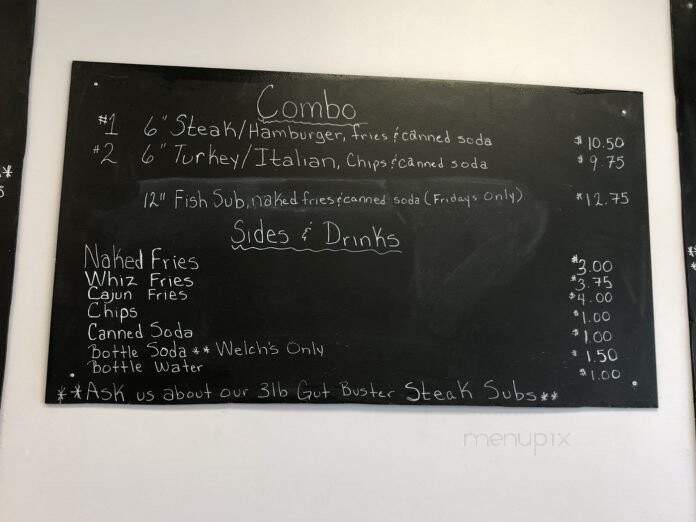 Combo
#1 6" Steak/Hamburger, fries & canned soda $10.50
#2 6" Turkey/Italian, Chips & canned soda $9.75
12" Fish Sub, naked fries & canned soda (Fridays Only) $12.75
Sides & Drinks
Naked Fries $3.00
Whiz Fries $3.75
Cajun Fries $4.00
Chips $1.00
Canned Soda $1.00
Bottle Soda ** Welch's Only $1.50
Bottle Water $1.00
**Ask us about our 3lb Gut Buster Steak Subs**
menupix